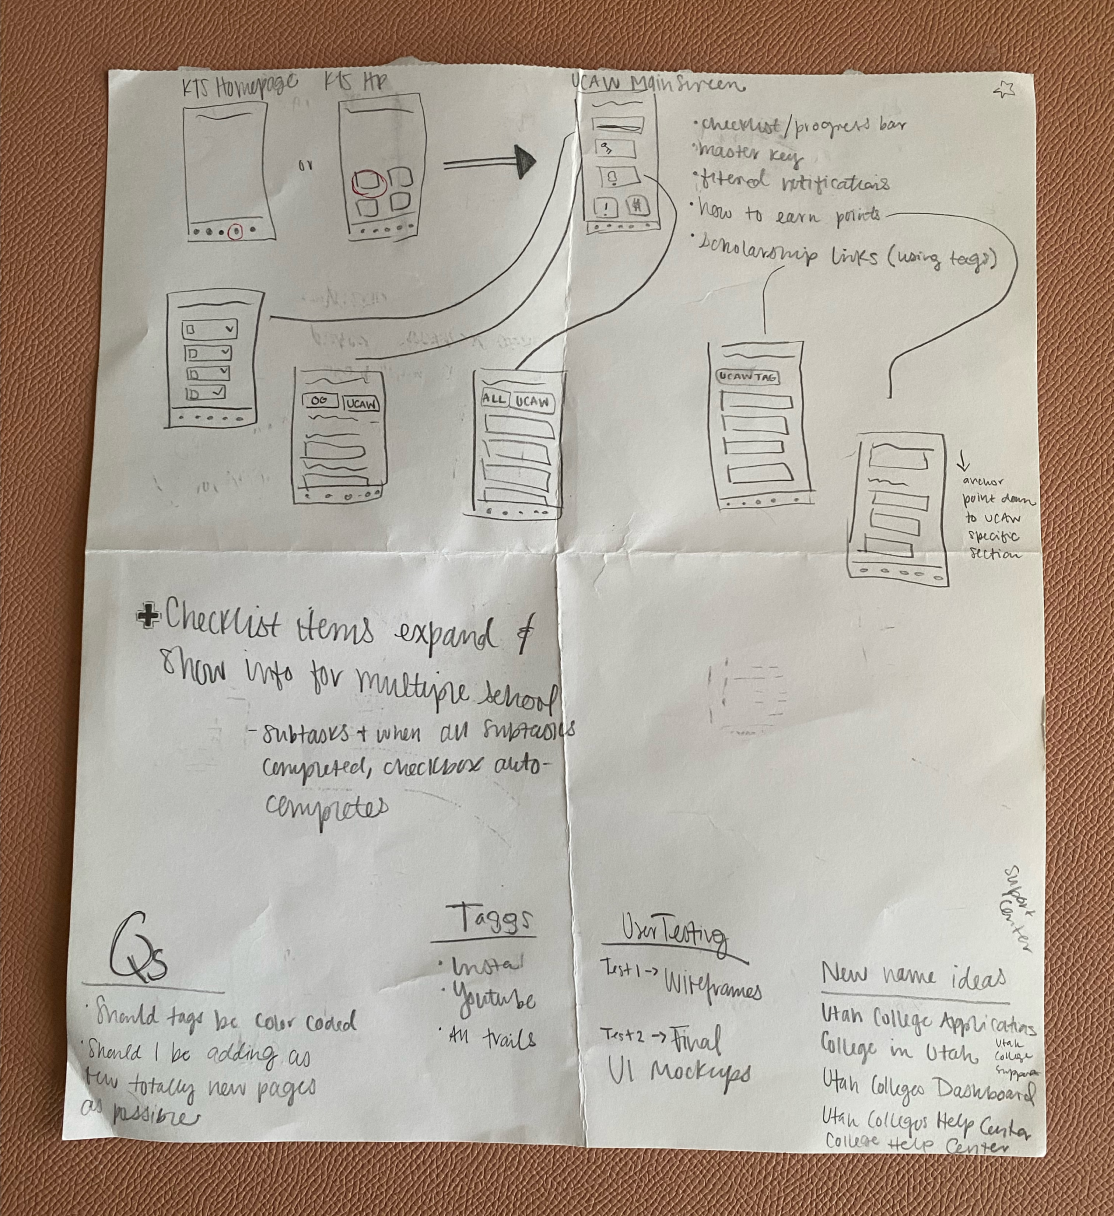 KTS Homepage
KTS HP
UCAW Main Screen
or
• checklist/progress bar
• master key
• filtered notifications
• how to earn points
• scholarship links (using tags)
!
#
OG
UCAW
ALL
UCAW
UCAW TAG
↓
anchor
point down
to UCAW
specific
section
+ Checklist items expand &
show info for multiple school
- subtasks + when all subtasks
completed, checkbox auto-
completes
Qs
• Should tags be color coded
• Should I be adding as
few totally new pages
as possible
Taggs
• Insta
• Youtube
• All trails
User Testing
Test 1 → Wireframes
Test 2 → Final
UI Mockups
support
center
New name ideas
Utah College Applications
College in Utah
Utah
College
Support
Utah Colleges Dashboard
Utah Colleges Help Center
College Help Center